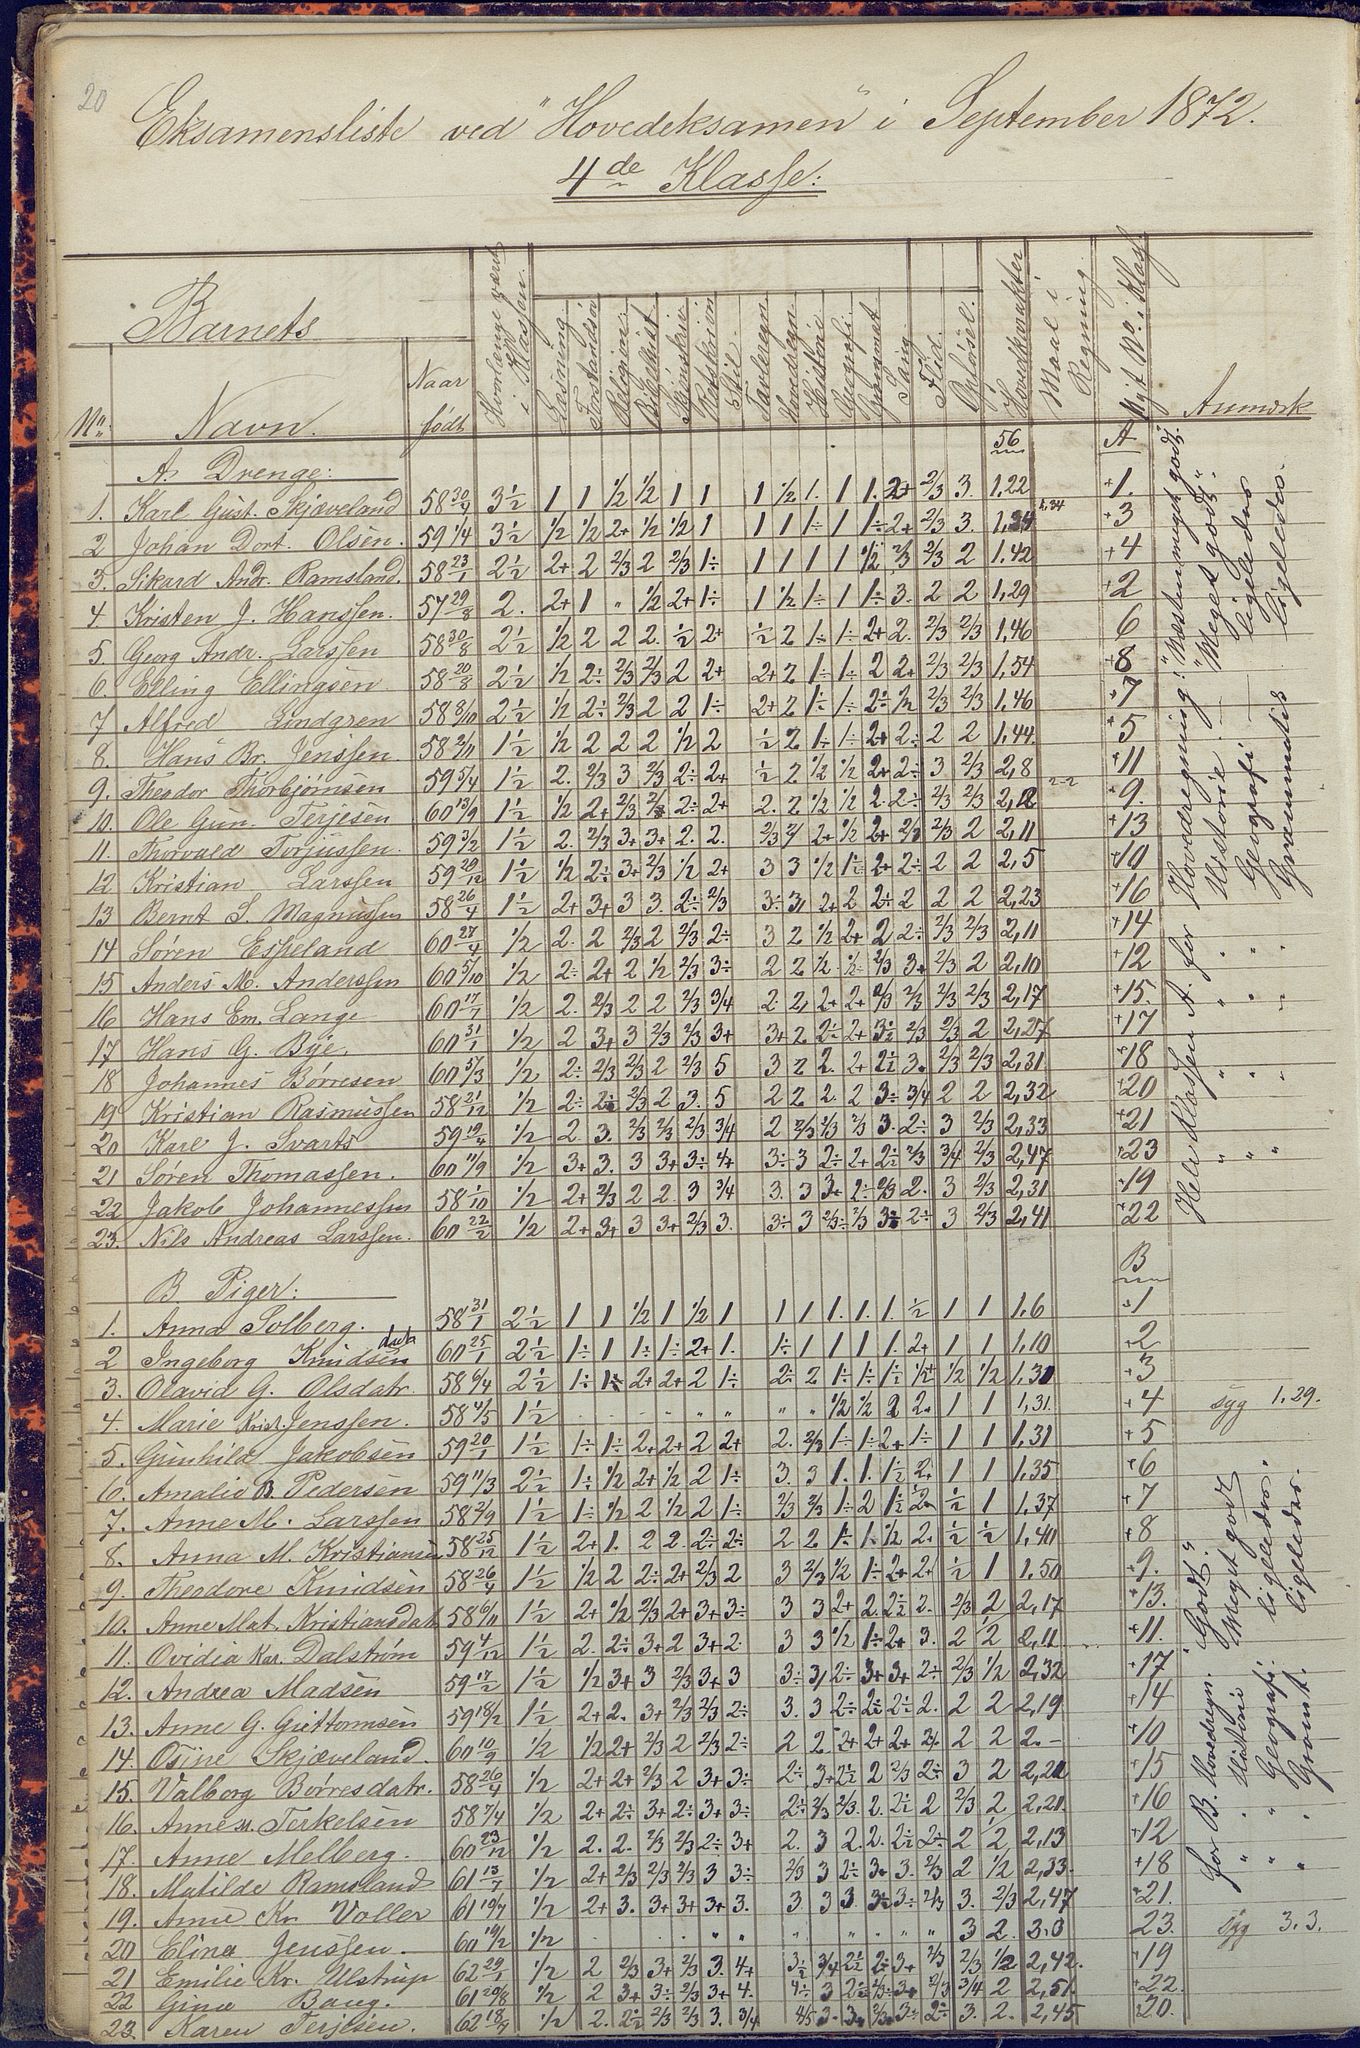 20
Eksamensliste ved "Hovedeksamen" i September 1872.
4de Klasse:
Barnets
No. Navn. Naar født Hvorlænge været i Klassen. Læsning Forstandsøv. Religion Bibelhist. Skjønskriv. Retskrivn. Stil Tavleregn. Hovedregn. Historie Geografi Grammat. Sang Flid. Opførsel. Hovedkarakter Maal i Regning. Nyt No. i Klass. Anmærk
56 A
A. Drenge:
1. Karl Gust. Skjæveland 58 30/4 3½ 1 1 ½ ½ 1 1 1 ½ 1. 1 1. 2+ 2/3 3. 1,22 +1.
2 Johan Dort. Olsen. 59 1/4 3½ ½ ½ 2+ ½ ½ 1 1 1 1÷ 1 1÷ 2+ 2/3 3 1,34 1,34 +3
3. Sikard Andr. Ramsland. 58 23/1 2½ 2+ 2 2/3 2 2/3 1÷ 1 1 1 1 ½ 2/3 2/3 2 1.42 +4
4 Kristen J. Hanssen. 57 29/8 2. 2+ 1 " ½ 2+ 1÷ 1 ½ 1÷ 1 1÷ 3. 2 2 1,29 +2
5. Georg Andr. Larssen 58 30/8 2½ ½ 2 2 2. ½ 2+ ½ 2 1÷ 1÷ 2+ 2. 2/3 2/3 1,46 6
6. Elling Ellingsen 58 20/8 2½ ½ 2÷ 2/3 2/3 2 2+ 2+ 2 1÷ 1÷ 2 2+ 2/3 2/3 1,54 +8
7 Alfred Lindgren 58 8/10 2½ ½ 2÷ 2/3 2 2 1÷ 2+ 2 1÷ 1÷ 2÷ ½ 2/3 2/3 1,46 +7
8. Hans Br. Jenssen. 58 2/11 1½ ½ 2 2 2 ½ 2 ½ 2 1÷ 1÷ 2+ 2÷ 2 2 1,44. +5
9. Theodor Thorbjørnsen 59 5/4 1½ 2. 2/3 3 2/3 2÷ 2+ ½ 2 ½ ½ 2+ 2÷ 3 2/3 2,8 +11
10. Ole Gun. Terjesen 60 13/9 1½ ½ 2+ 2/3 2/3 2÷ 2+ 2. 2 ½ ½ 2. 2÷ 2/3 2/3 2,12 2-2 +9.
11. Thorvald Torjussen. 59 3/2 1½ 2. 2/3 3+ 3+ 2. 2. 2/3 2/ 2+ ½ 2+ 2/3 2/3 2 2,11 +13
12 Kristian Larssen 59 29/12 1½ ½ 2÷ 3+ 2/3 ½ 2+ 3 3 ½ 1÷ 2+ 2÷ 2 2 2,5 +10
13 Bernt S. Magnussen 58 26/4 1½ 2+ 3+ 3 3. 2÷ 2/3 3÷ 3/ 2+ 2 2÷ 2 2 2 2,23 +16
14 Søren Espeland 60 27/4 ½ 2. 2 2/3 2 2/3 2÷ 3 2 ½ 2+ 2 2÷ 2/3 2/3 2,11 +14
15 Anders M. Anderssen 60 5/10 ½ 2÷ 2+ 2 ½ 2/3 3÷ 2 2 ½ ½ 2/3 3+ 2/3 2 2,10 +12
16 Hans Em. Lange 60 17/7 ½ 2. 2/3 2 2 2/3 3/4 2. 2, 2+ 2+ 2/3 2/3 2/3 2/3 2,17 +15.
17 Hans G. Bye. 60 31/1 ½ 2 3+ 3 2/3 2/3 3+ 3+ 2 2÷ 2+ 3÷ 2/3 2/3 2 2,27 +17
18 Johannes Børresen 60 5/3 ½ 2÷ 2/3 2/3 2 2/3 5 3 2 2. 2+ 2÷ 3. 2/3 2/3 2,31. +18
19 Kristian Rasmussen 58 21/12 ½ 2÷ 2÷ 2/3 2 3. 5 2 2 2. 2 3÷ 3/4 2 2 2,32 +20
20 Karl J. Svarts 59 19/4 ½ 2 3. 2/3 2/3 2/3 3/4 2 2/3 2/3 2/3 3. 2÷ 3 2/3 2,33 +21
21 Søren Thomassen. 60 11/9 ½ 3+ 3. 3 3+ 3÷ 4+ 3÷ 3 2÷ 2+ 2÷ 2/3 3/4 2/3 2,47 +23
22 Jakob Johannessen 58 1/10 ½ 2+ 2/3 2 2. 3 3/4 3. 3 3+ 2÷ 2/3 2. 3 2/3 2,31 +19
23. Nils Andreas Larssen. 60 22/2 ½ 2+ 3+ 3 3+ 2/3 3. 3÷ 3 2/3÷ 2/3 3÷ 2÷ 3 2/3 2,41 +22
Hele Klassen A. for Hovedregning: "Næsten meget godt".
" " " Historie — "Meget godt".
" " " Geografi — ligeledes
" " " Grammatik ligeledes.
B
B Piger:
1. Anna Solberg. 58 31/1 2½ 1 1 ½ 1 ½ 1 1 1 1. 1. 1. ½ 1 1 1,6 +1
2 Ingeborg Knudsen datr 60 25/1 2½ 1÷ 1 1÷ 1÷ 2+ 1. 1÷ 1 1 1 1. 2+ 1 1 1,10 +2
3. Olavid G. Olsdatr. 58 6/4 2½ 1÷ 1÷ 2+ 2+ 2 1÷ 2÷ 2 1÷ 1÷ 1÷ ½+ ½ ½ 1,30 +3
4. Marie Krist. Jenssen. 58 4/5 1½ . . . . " " " " ½ ½ 2 2. 1 1 1,31. +4 syg 1,29.
5. Gunhild Jakobsen 59 20/1 1½ 1÷ 1÷ 2+ 2+ 2 2+ 2. 2/3 1÷ 1÷ 2+ 1÷ 1 1 1,31 +5
6. Amalie B. Pedersen 59 11/3 2½ 1÷ ½ 2+ ½ 2 1÷ 3. 3 1. 1. 1½ 2+ 1 1 1,35. +6
7. Anne M. Larssen 58 2/9 1½ 1÷ ½ 2 ½ 2 1÷ 2/3 2/3 1÷ 2 1½ 2. ½ 1 1,37 +7
8. Anna M. Kristiansen 58 25/12 1½ 2+ 1. 2 2. 2÷ 2÷ 2 2 1÷ 1÷ ½ 2. ½ ½ 1,40 +8
9. Theodore Knudsen 58 26/4 1½ ½ 2 2÷ 2+ 2/3 2 3 2/3 ½ 1÷ 2+ 2+ ½ 1 1,50 +9.
10. Anne Mat. Kristiansdatr 58 6/11 1½ 2+ ½ 2/3 2+ 3+ 3÷ 3 3 2+ 2. 2½ 2. 2/3 2 2,17 +13.
11. Ovidia Kar. Dalstrøm 59 4/12 1½ 2. 2÷ 3+ 2 3+ 2. 3 3 ½ 1÷ 2+ 3. 2 2 2,11 +11.
12. Andrea Madsen 59 17/2 1½ ½ 3+ 3 2/3 3+ 3 3÷ 3/ 2÷ 3+ 3+ 2÷ 2/3 ½ 2,32 +17
13. Anne G. Guttormsen 59 18/2 1½ 2+ 2. 3+ 2/3 2/3 2÷ 3. 3 2÷ 2÷ 2÷ 2. 2 2 2,19 +14
14. Osine Skjæveland. 60 10/9 ½ ½ 2+ 2/3 2 2/3 2÷ 2 2 2+ 2+ 2+ 2/. 2 2 2.— +10
15. Valborg Børresdatr. 58 26/4 ½ 2+ 2+ 2/3 2 3+ 3÷ 2÷ 3+ 2½ 2 2/3 2÷ 3 2 2,20 +15
16. Anne M. Terkelsen 58 7/4 ½ 2+ 2÷ 3+ 2÷ 3+ 3÷ 2÷ 2/3 2/3. 2. 2÷ 2 2/3 2 2,21. +16
17. Anne Melberg. 60 23/12 ½ 2. 2. 2/3 2/3 2÷ 3+ 2. 3 2. 2. 2÷ 2÷ 2 2 2,13 +12
18. Matilde Ramsland 61 13/7 ½ 2+ 2/3 2/3 2/3 3 3÷ 2/3 3 2÷ 3. 3. 2/3 2 ½ 2,33. +18
19. Anne Kr. Voller 61 19/7 ½ 2+ 3. 3+ 3+ 3+ 3. 3 3 3. 3÷ 3÷ 2/3 3. 2/3 2,47 +21.
20 Elina Jenssen. 60 19/2 ½ . . . . " " " " " " " " 3 2. 3.0 23. syg 3.3.
21 Emilie Kr. Ulstrup 62 29/1 ½ 2 2/3 3+ 2/3 3. 4+ 3½ 3/4 2½ 2÷ 3+ 2/3 2/3 ½ 2,42. +19
22 Gina Baug. 61 20/8 ½ 2 3+ 3÷ 2/3 3+ 4. 4÷ 3 2÷ 2/3÷ 3+ 2/3 3/4 2 2,51. +22.
23. Karen Terjesen. 62 18/9 ½ 2. 2½ 2/3 2/3 3. 3/4 4/5 3. 3. 2/3. 3÷ 2÷ 3. 2. 2,45 20.
for B. Hovedregn. "Godt".
" . Historie Meget godt
" " Geografi. ligeledes.
" . Gramt. ligeledes.